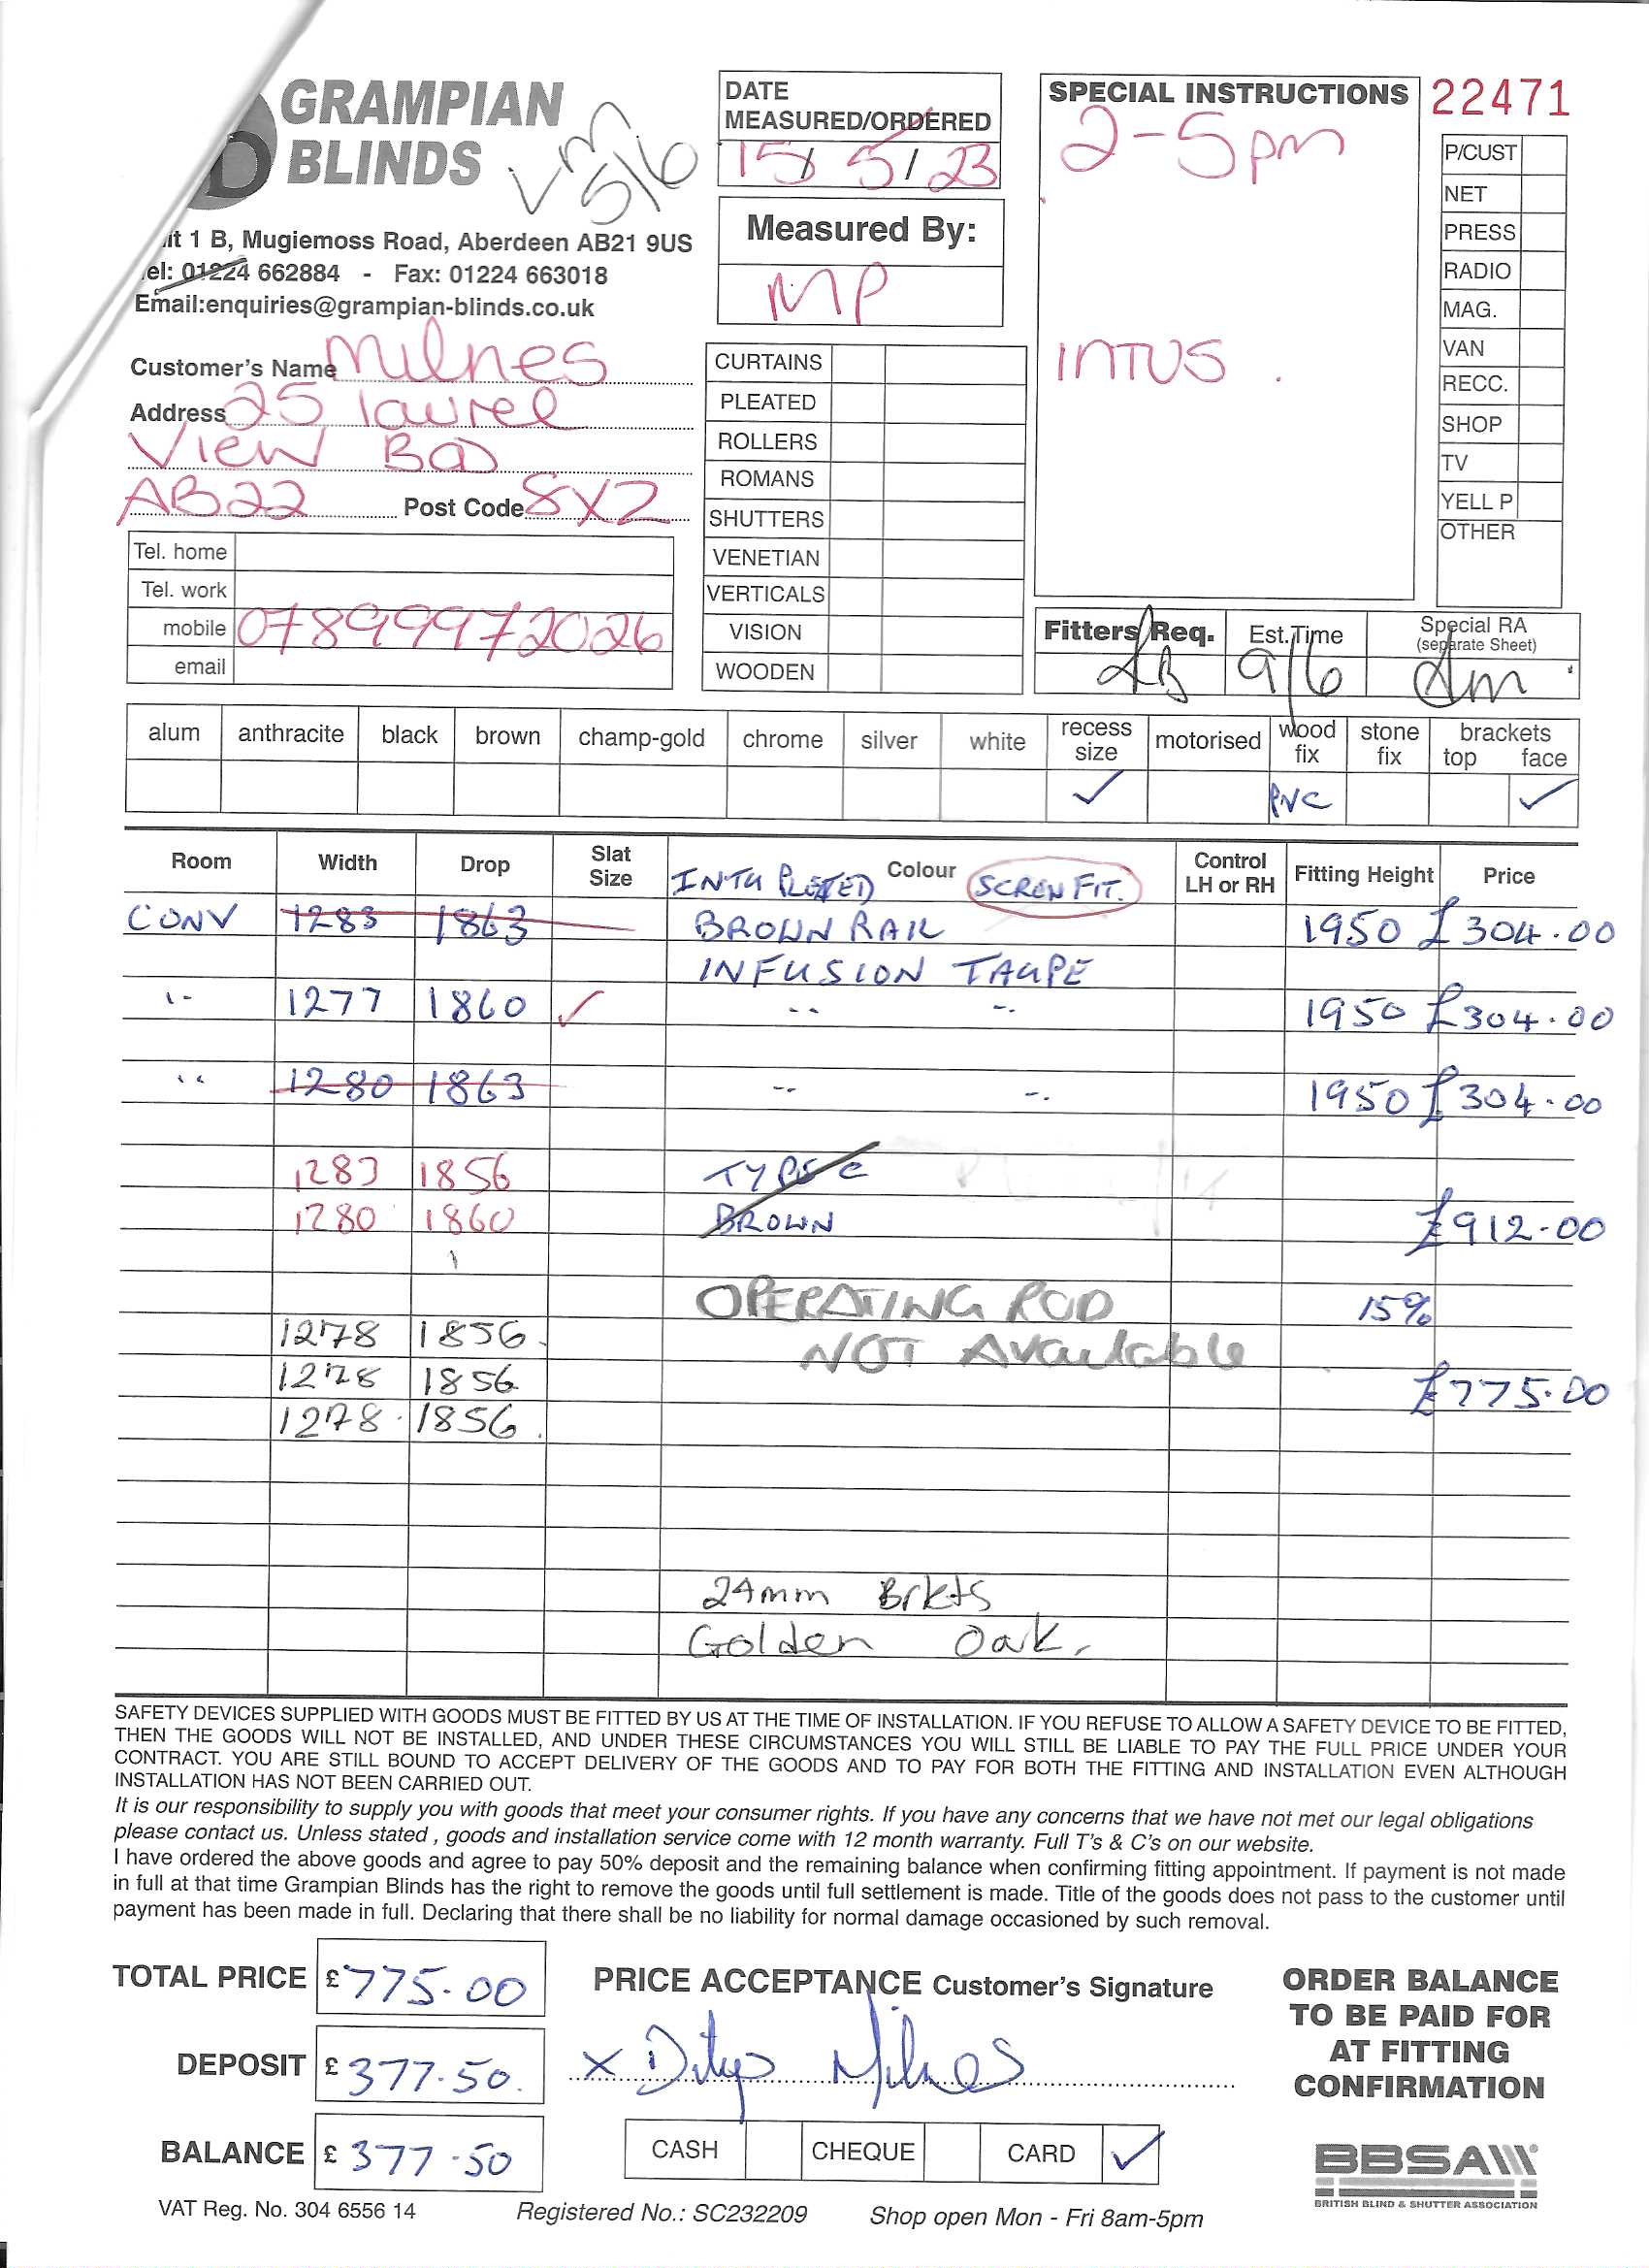 GRAMPIAN
BLINDS
5/6
it 1 B, Mugiemoss Road, Aberdeen AB21 9US
el: 01224 662884 - Fax: 01224 663018
Email:enquiries@grampian-blinds.co.uk
DATE
MEASURED/ORDERED
15/ 5/ 23
Measured By:
MP
SPECIAL INSTRUCTIONS
2-5pm
INTUS.
22471
P/CUST
NET
PRESS
RADIO
MAG.
VAN
RECC.
SHOP
TV
YELL P
OTHER
Customer's Name Milnes
Address 25 laurel
View BOD
AB22 Post Code 8XZ
Tel. home
Tel. work
mobile 07899972026
email
CURTAINS
PLEATED
ROLLERS
ROMANS
SHUTTERS
VENETIAN
VERTICALS
VISION
WOODEN
Fitters Req. Est.Time Special RA
(separate Sheet)
AB 9/6 Am
alum anthracite black brown champ-gold chrome silver white recess size motorised wood fix stone fix brackets top face
✓ PVC ✓
Room Width Drop Slat Size Colour Control LH or RH Fitting Height Price
INTU PLEATED SCREW FIT.
CONV 1283 1863 BROWN RAIL 1950 £304.00
INFUSION TAUPE
1277 1860 ✓ 1950 £304.00
1280 1863 1950 £304.00
1283 1856 TYPE C
1280 1860 BROWN £912-00
OPERATING ROD 15%
1278 1856 NOT Available
1278 1856 £775.00
1278 1856
24mm Brkts
Golden Oak.
SAFETY DEVICES SUPPLIED WITH GOODS MUST BE FITTED BY US AT THE TIME OF INSTALLATION. IF YOU REFUSE TO ALLOW A SAFETY DEVICE TO BE FITTED,
THEN THE GOODS WILL NOT BE INSTALLED, AND UNDER THESE CIRCUMSTANCES YOU WILL STILL BE LIABLE TO PAY THE FULL PRICE UNDER YOUR
CONTRACT. YOU ARE STILL BOUND TO ACCEPT DELIVERY OF THE GOODS AND TO PAY FOR BOTH THE FITTING AND INSTALLATION EVEN ALTHOUGH
INSTALLATION HAS NOT BEEN CARRIED OUT.
It is our responsibility to supply you with goods that meet your consumer rights. If you have any concerns that we have not met our legal obligations
please contact us. Unless stated , goods and installation service come with 12 month warranty. Full T's & C's on our website.
I have ordered the above goods and agree to pay 50% deposit and the remaining balance when confirming fitting appointment. If payment is not made
in full at that time Grampian Blinds has the right to remove the goods until full settlement is made. Title of the goods does not pass to the customer until
payment has been made in full. Declaring that there shall be no liability for normal damage occasioned by such removal.
TOTAL PRICE £775.00
DEPOSIT £377.50.
BALANCE £377.50
PRICE ACCEPTANCE Customer's Signature
x Milnes
CASH CHEQUE CARD ✓
ORDER BALANCE
TO BE PAID FOR
AT FITTING
CONFIRMATION
BBSA
BRITISH BLIND & SHUTTER ASSOCIATION
VAT Reg. No. 304 6556 14 Registered No.: SC232209 Shop open Mon - Fri 8am-5pm